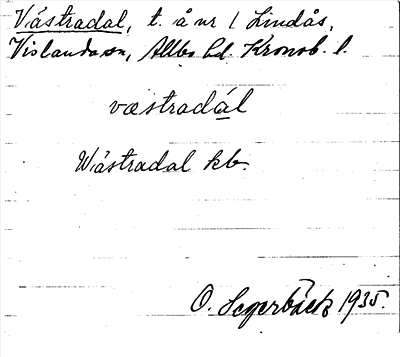 Västradal, t. å nr 1 Lindås,
Vislanda sn, Allbo hd. Kronob. l.
væstradál
Wästradal kb.
O. Segerbäck 1935.